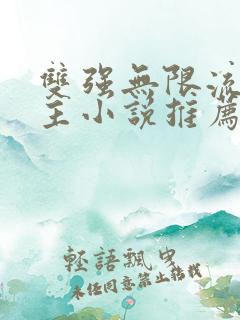 雙強無限流
主小說推薦
輕語飄曳
未任同意禁止轉載